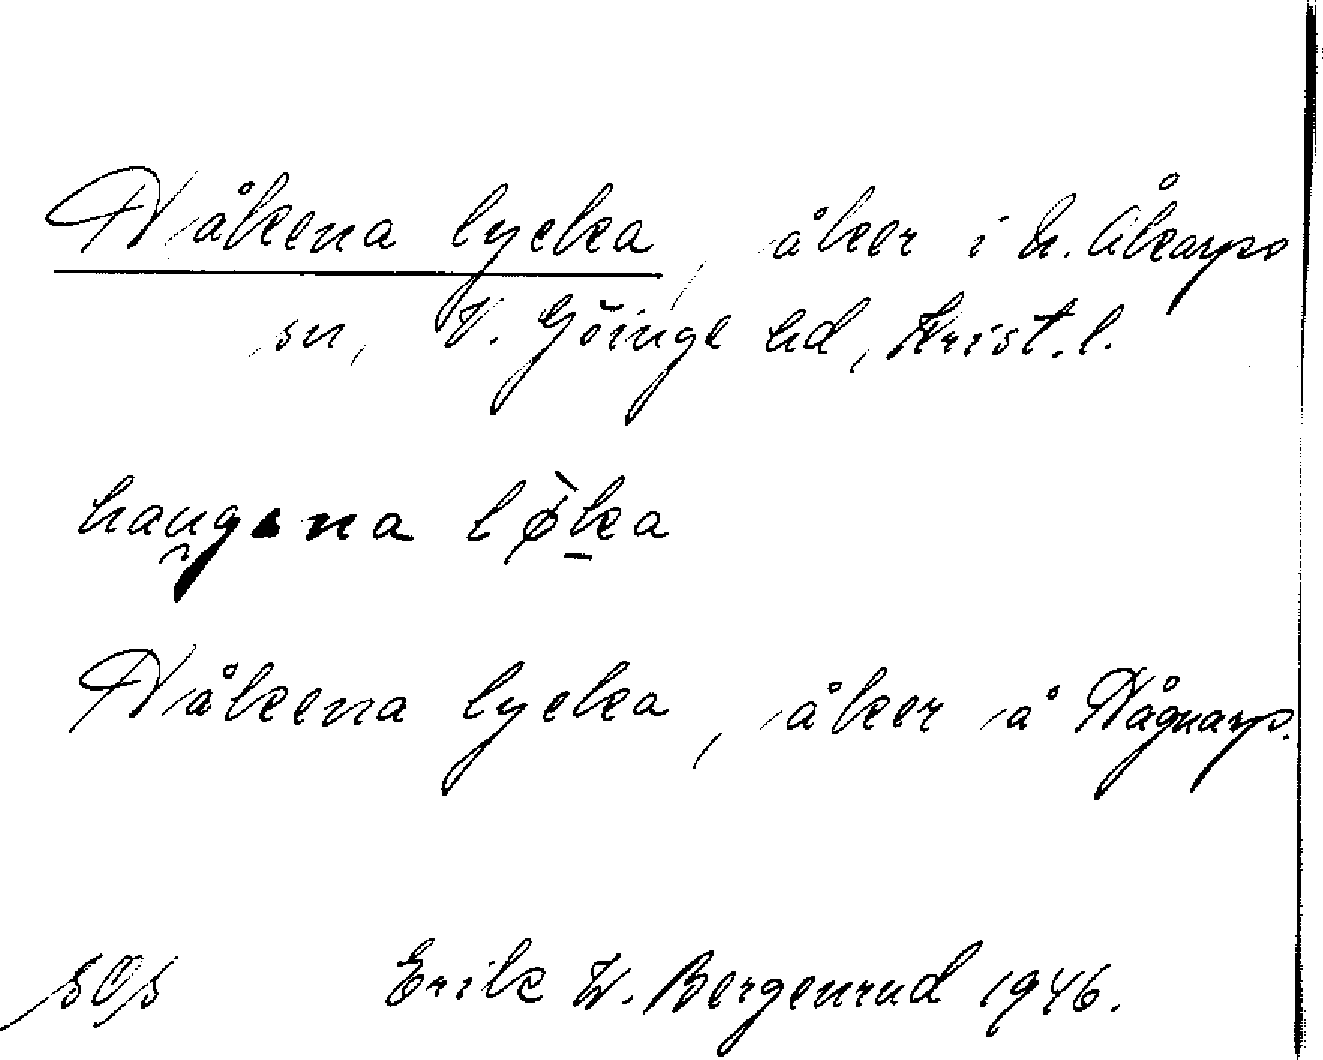 Håkena lycka, åker i N. Åkarps
sn, V. Göinge hd, Krist. l.
haṷgena lø̀ḵa
Håkena lycka, åker å Hågnarp.
Erik W. Bergenrud 1946.